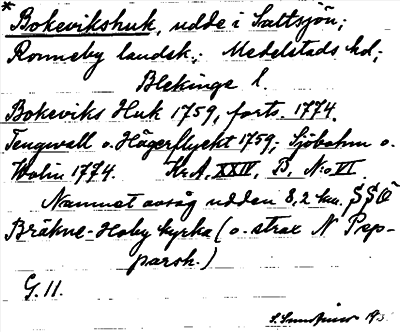 * Bokevikshuk, udde i Saltsjön;
Ronneby landsk.; Medelstads hd;
Blekinge l.
Bokeviks Huk 1759, forts. 1774.
Tengwall o. Högerflyckt 1759; Sjöbohm o.
Wolin 1774. Kr.A. XXIV, B, No VI.
Namnet avsåg udden 8,2 km. SSÖ
Bräkne-Hoby kyrka (o. strax N Pep-
parsh.)
G. 11.